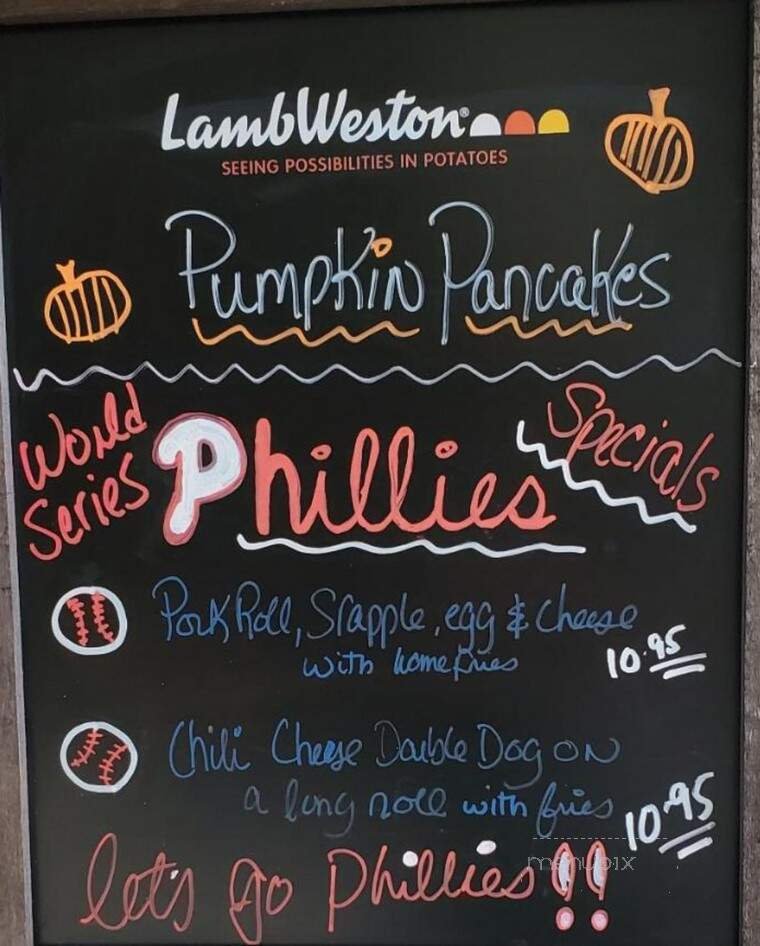 LambWeston®
SEEING POSSIBILITIES IN POTATOES
Pumpkin Pancakes
World Series Phillies Specials
Pork Roll, Srapple, egg & cheese
with homefries
10.95
Chili Cheese Double Dog on
a long roll with fries
10.95
let's go Phillies!!
menupix